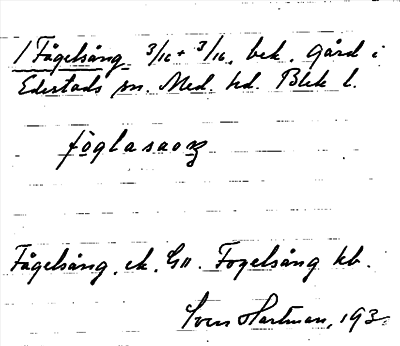 1 Fågelsång 3/16 + 3/16, bek. Gård i
Edestads sn. Med. hd. Blek l.
föglasaoŋ
Fågelsång, ek. GH. Fogelsång kb.
Sven Hartman, 193